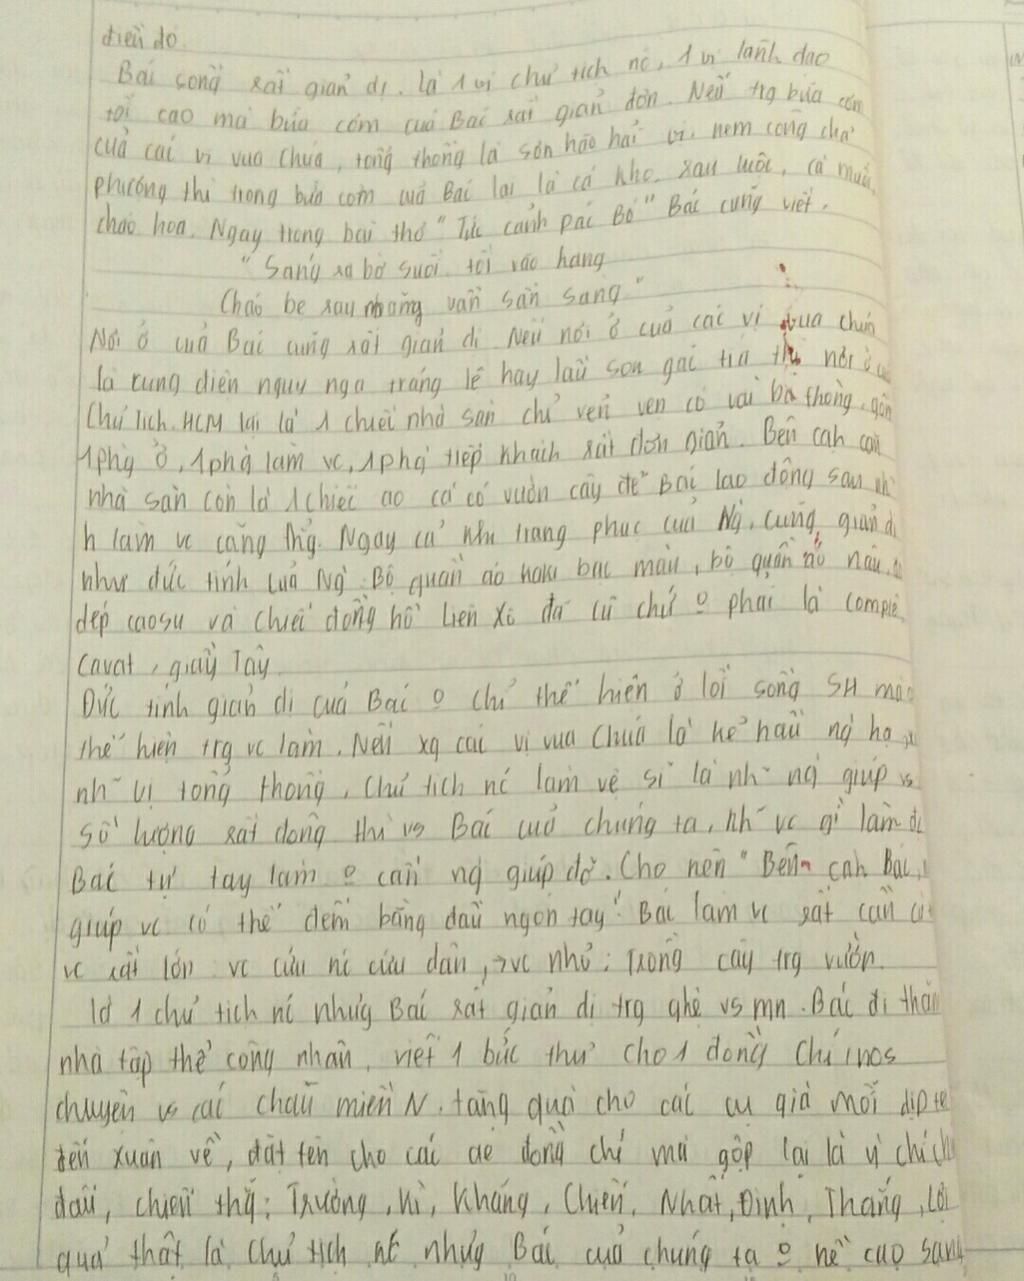 điều đó.
Bác sống rất giản dị. Là 1 vị chủ tịch nc, 1 vị lãnh đạo
tối cao mà bữa cơm của Bác rất giản đơn. Nếu trg bữa cơm
của các vị vua chúa, tổng thống là sơn hào hải vị, nem công chả
phượng thì trong bữa cơm của Bác lại là cá kho, rau luộc, cà muối,
cháo hoa. Ngay trong bài thơ "Tức cảnh Pác Bó" Bác cũng viết.
"Sáng ra bờ suối tối vào hang
Cháo bẹ rau măng vẫn sẵn sàng"
Nơi ở của Bác cũng rất giản dị. Nếu nơi ở của các vị vua chúa
là cung điện nguy nga tráng lệ hay lầu son gác tía thì nơi ở
Chủ tịch HCM lại là 1 chiếc nhà sàn chỉ vẻn vẹn có vài ba phòng, gồm
1 phg ở, 1 phg làm vc, 1 phg tiếp khách rất đơn giản. Bên cạh căn
nhà sàn còn là 1 chiếc ao cá có vườn cây để Bác lao động sau nh
h làm vc căng thg. Ngay cả khi trang phục của Ng, cũng giản dị
như đức tính của Ng. Bộ quần áo kaki bạc màu, bộ quần áo nâu,
dép caosu và chiếc đồng hồ Liên Xô đã cũ chứ o phải là complê,
Cavat, giày Tây.
Đức tính giản dị của Bác o chỉ thể hiện ở lối sống SH mà
thể hiện trg vc làm. Nếu xq các vị vua chúa là kẻ hầu ng hạ,
nh~ vị tổng thống, chủ tịch nc làm vệ sĩ là nh~ ng giúp vc
số lượng rất đông thì vs Bác của chúng ta, nh~ vc gì làm đc
Bác tự tay làm o cần ng giúp đỡ. Cho nên "Bên cạh Bác,
giúp vc có thể đếm bằng đầu ngón tay". Bác làm vc rất cần cù
vc rất lớn: vc cứu nc cứu dân, → vc nhỏ: Trồng cây trg vườn.
Là 1 chủ tịch nc nhưg Bác rất giản dị trg qhệ vs mn. Bác đi thăm
nhà tập thể công nhân, viết 1 bức thư cho 1 đồng chí, nói
chuyện vs các cháu miền N. tặng quà cho các cụ già mỗi dịp tết
đến xuân về, đặt tên cho các ae đồng chí mà gộp lại là ý chí
đấu, chiến thg: Trường, Kì, Kháng, Chiến, Nhất, Định, Thắng, Lợi
quả thật là chủ tịch nc nhưg Bác của chúng ta o hề cao sang